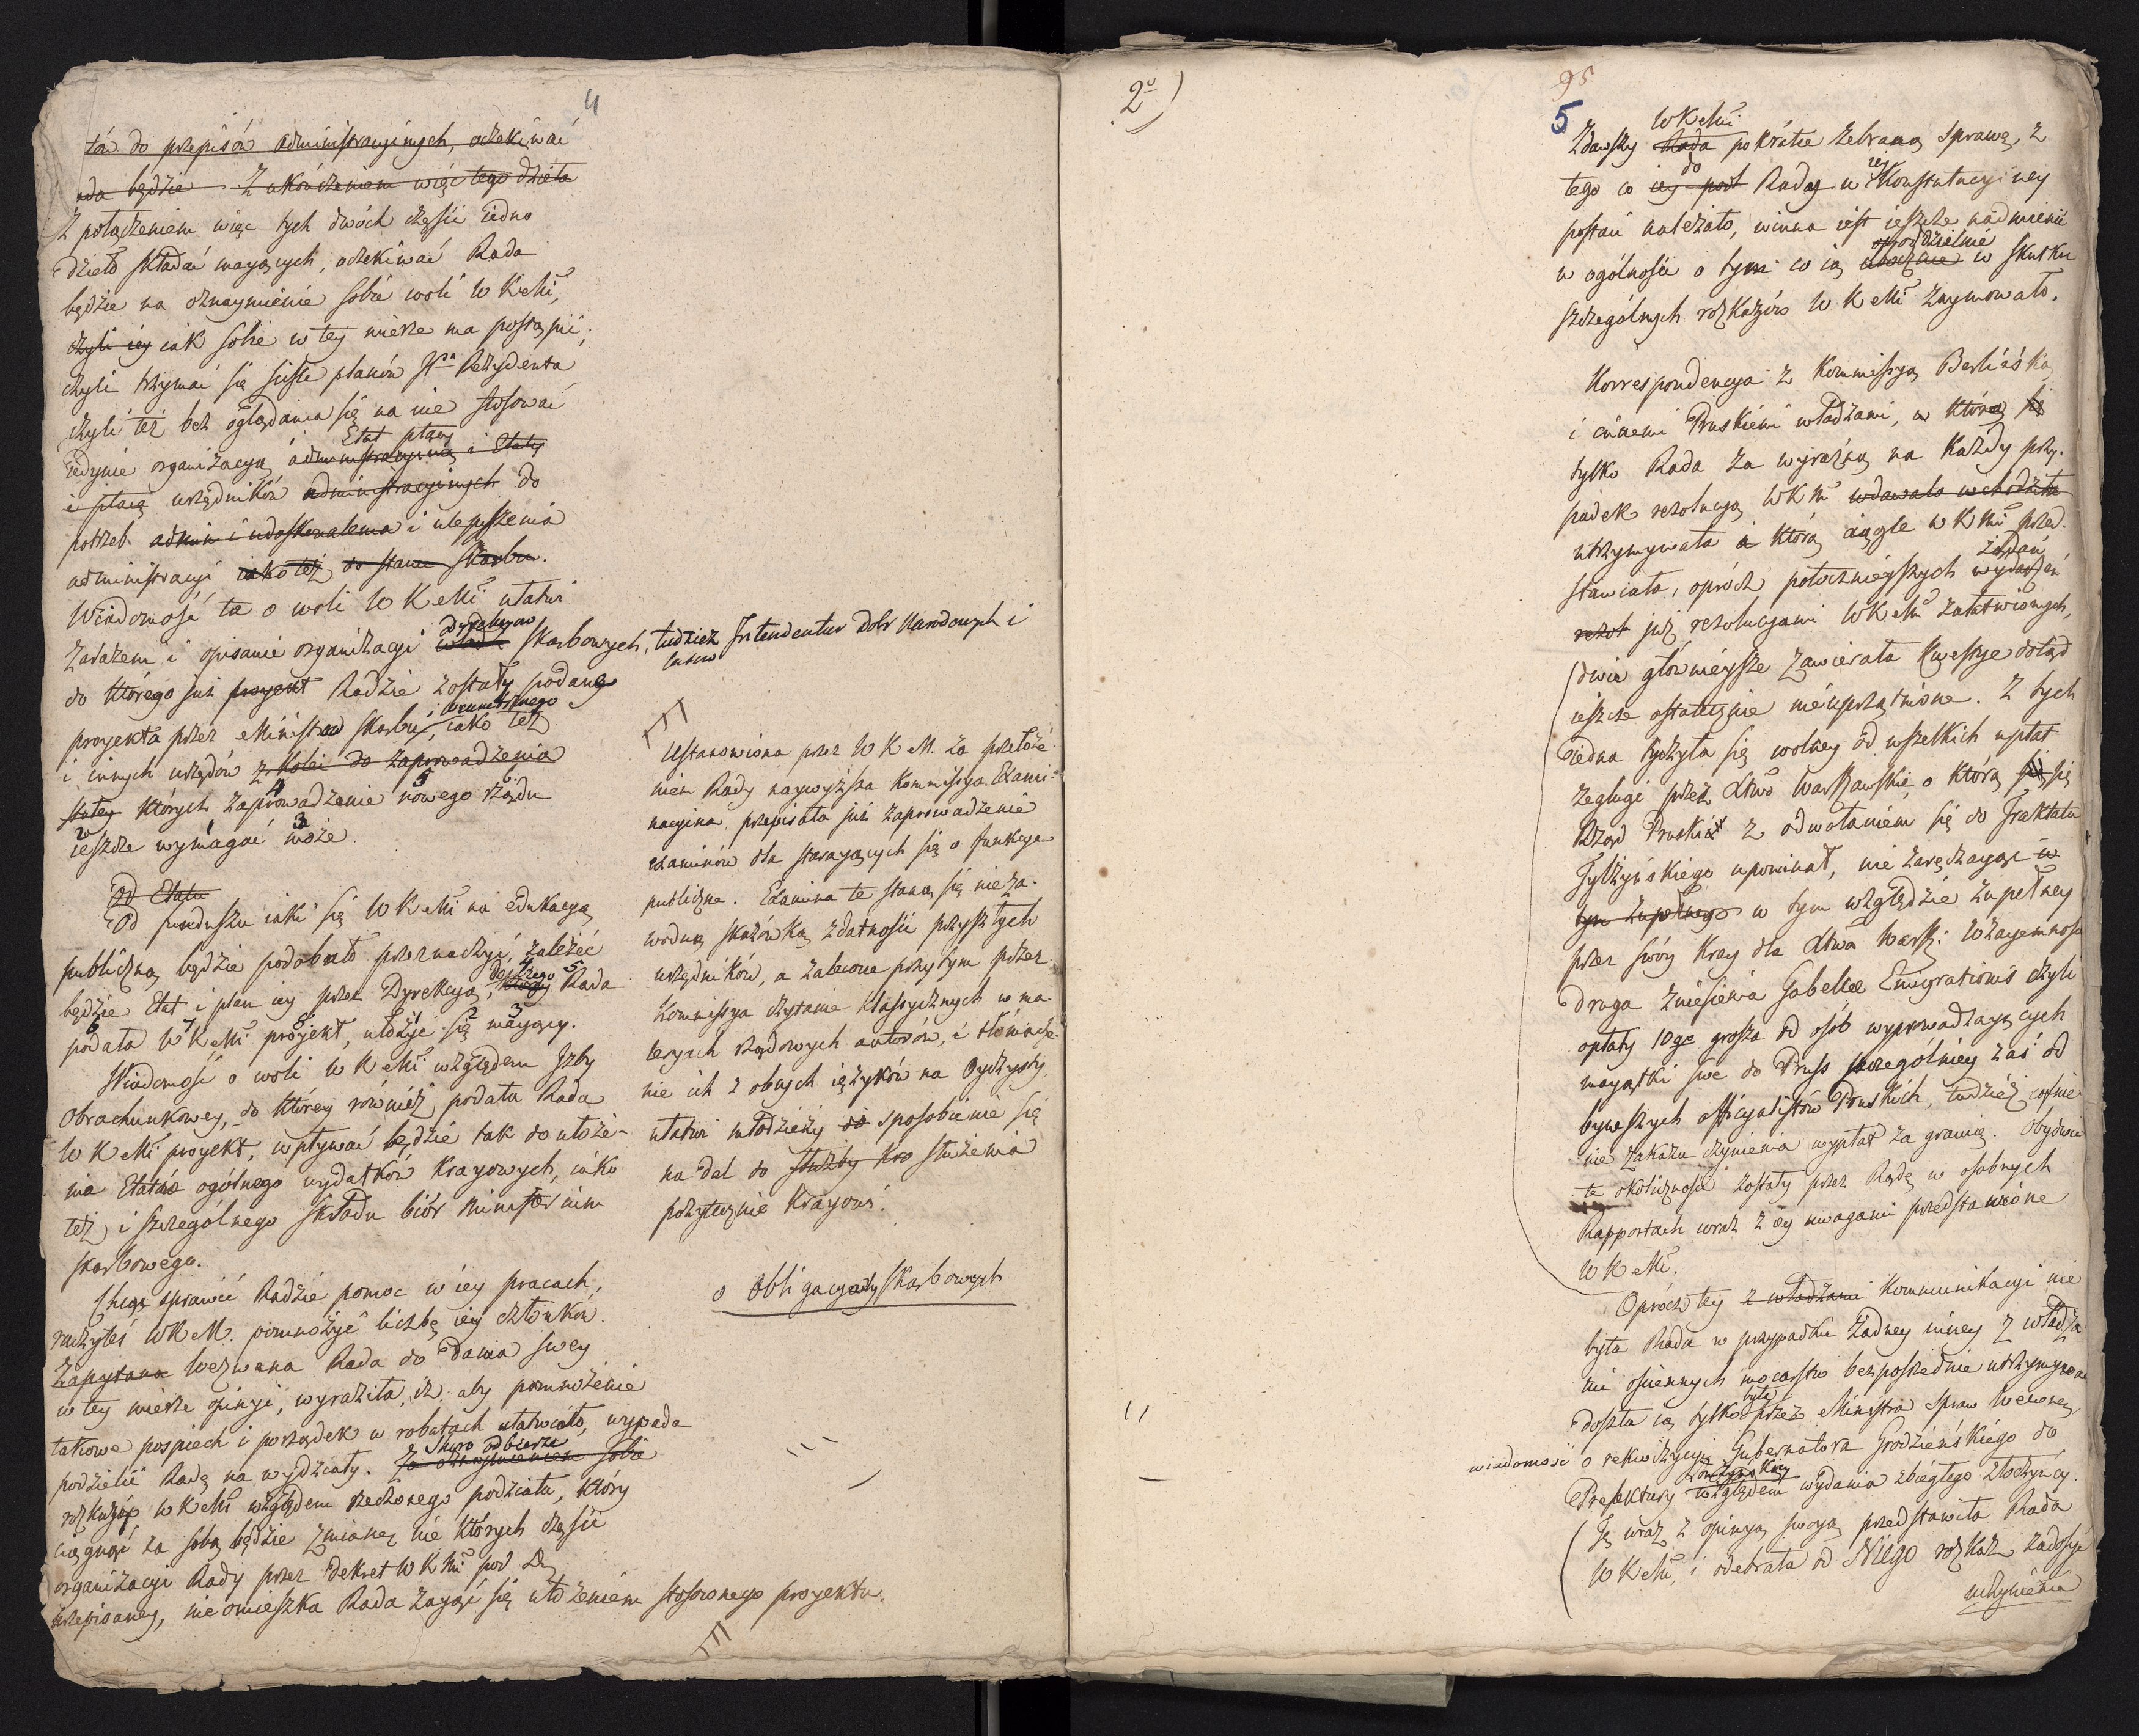 4
tów do przepisów administracyinych, oczekiwać
będzie Z ukończeniem więc tego dzieła
Z połączeniem więc tych dwóch części iedno
dzieło składać maiących, oczekiwać Rada
będzie na oznaymienie sobie woli W K Mci,
czyli iey iak sobie w tey mierze ma postąpić,
czyli trzymać się ściśle planów Pna Rezydenta
czyli też bez oglądania się na nie stosować
Etat płacy
iedynie organizacyą administracyiną i Etaty
i płacę urzędników administracyinych do
potrzeb admin i udoskonalenia i ulepszenia
administracyi iako też do stanu skarbu.
Wiadomość ta o woli W K Mci ułatwi
dyrekcyow
zarazem i opisanie organizacyi władz skarbowych, tudzież Intendentur Dobr Narodowych i
lasow
do którego już proyekt Radzie zostały podane
proyekta przez Ministra Skarbu, iako też
i innych urzędów z kolei do zaprowadzenia
4 5
których zaprowadzenie nowego rządu
2 1 3
ieszcze wymagać może.
Od Etatu
Od funduszu iaki się W K Mci na edukacyą
publiczną będzie podobało przeznaczyć, zależeć
4 5
będzie Etat i plan iey przez Dyrekcyą, którey Rada
6 7 8 1 2 3
podała W K Mci proiekt, ułożyć się maiący.
Wiadomość o woli W K Mci względem Izby
Obrachunkowey, do którey również podała Rada
W K Mci proyekt, wpływać będzie tak do ułoże-
nia Etatu ogólnego wydatków kraiowych, iako
też i szczególnego składu biór minister nim
skarbowego.
Chcąc sprawić Radzie pomoc w iey pracach,
raczyłeś W K M. pomnożyć liczbę iey członków.
Zapytana Wezwana Rada do dania swey
w tey mierze opinyi, wyraziła, iż aby pomnożenie
takowe pospiech i porządek w robotach ułatwiało, wypada
podzielić Radę na wydziały. Za oznaymieniem sobie
Skoro odbierze
rozkazy W K Mci względem rzeczonego podziału, który
ciągnąć za sobą będzie zmianę nie których części
organizacyi Rady przez Dekret W K Mci pod D.
przepisaney, nie omieszka Rada zaiąć się ułożeniem stosownego proyektu.
Ustanowiona przez W K M. za przełoże-
niem Rady naywyższa Kommissya Exami-
nacyina przepisała już zaprowadzenie
examinów dla staraiących się o funkcye
publiczne. Examina te staną się nieza-
wodną skazówką zdatności przyszłych
urzędników, a zalecone przytym przez
Kommissyą czytanie klassycznych w ma-
teryach rządowych autorów, i tłómacze-
nie ich z obcych ięzyków na Oyczysty,
ułatwi młodzieży do sposobienie się
na dal do służby kra służenia
pożytecznie kraiowi.
o Obligacyach skarbowych
2º)
95
5
W K Mci
Zdawszy Rada pokrótce zebraną sprawę, z
do iey
tego co iey pod Rady w Konstytucyiney
postaci należało, winna iest ieszcze nadmienić
oddzielnie
w ogólności o tym co ią ubocznie w skutku
szczególnych rozkazów W K Mci zaymowało.
Korrespondencya z Kommissyą Berlińską
i innemi Pruskiemi władzami, w którą
tylko Rada za wyraźną na każdy przy-
padek rezolucyą W K M wdawała wchodziła
utrzymywała a którą ciągle W K Mci przed-
żądań
stawiała, oprócz potocznieyszych wydarzeń
rezol już rezolucyami W K Mci załatwionych,
dwie główneysze zawierała kwestye dotąd
ieszcze ostatecznie nieuprzątnione. Z tych
iedna tyczyła się wolney od wszelkich opłat
żeglugi przez Xtwo Warszawskie, o którą się
Rząd Pruski z odwołaniem się do Traktatu
Tylżyńskiego upominał, nie zaręczaiąc w
tym zupełney w tym względzie zupełney
przez swóy kray dla Xtwa Warsz: wzaiemności
Druga zniesienia Gabelle Emigrationis czyli
opłaty 10go grosza od osób wyprowadzaiących
maiątki swe do Pruss szczególniey zaś od
bywszych officyalistów Pruskich, tudzież cofnie-
nie zakazu czynienia wypłat za granicę. Obydwie
te okoliczności zostały przez Radę w osobnych
Rapportach wraz z iey uwagami przedstawione
W K Mci.
Oprócz tey z władzami kommunikacyi nie
była Rada w przypadku żadney inney z władza-
mi ościennych mocarstw bezpośrednie utrzymywać
była
Doszła ią tylko przez Ministra Spraw Wewnę.
wiadomość o rekwizycyi Gubernatora Grodzieńskiego do
Łomżyńskiey
Prefektury względem wydania zbiegłego złoczyńcy.
Tę wraz z opinyą swoią przedstawiła Rada
W K Mci, i odebrała od Niego rozkaz zadosyć
uczynienia